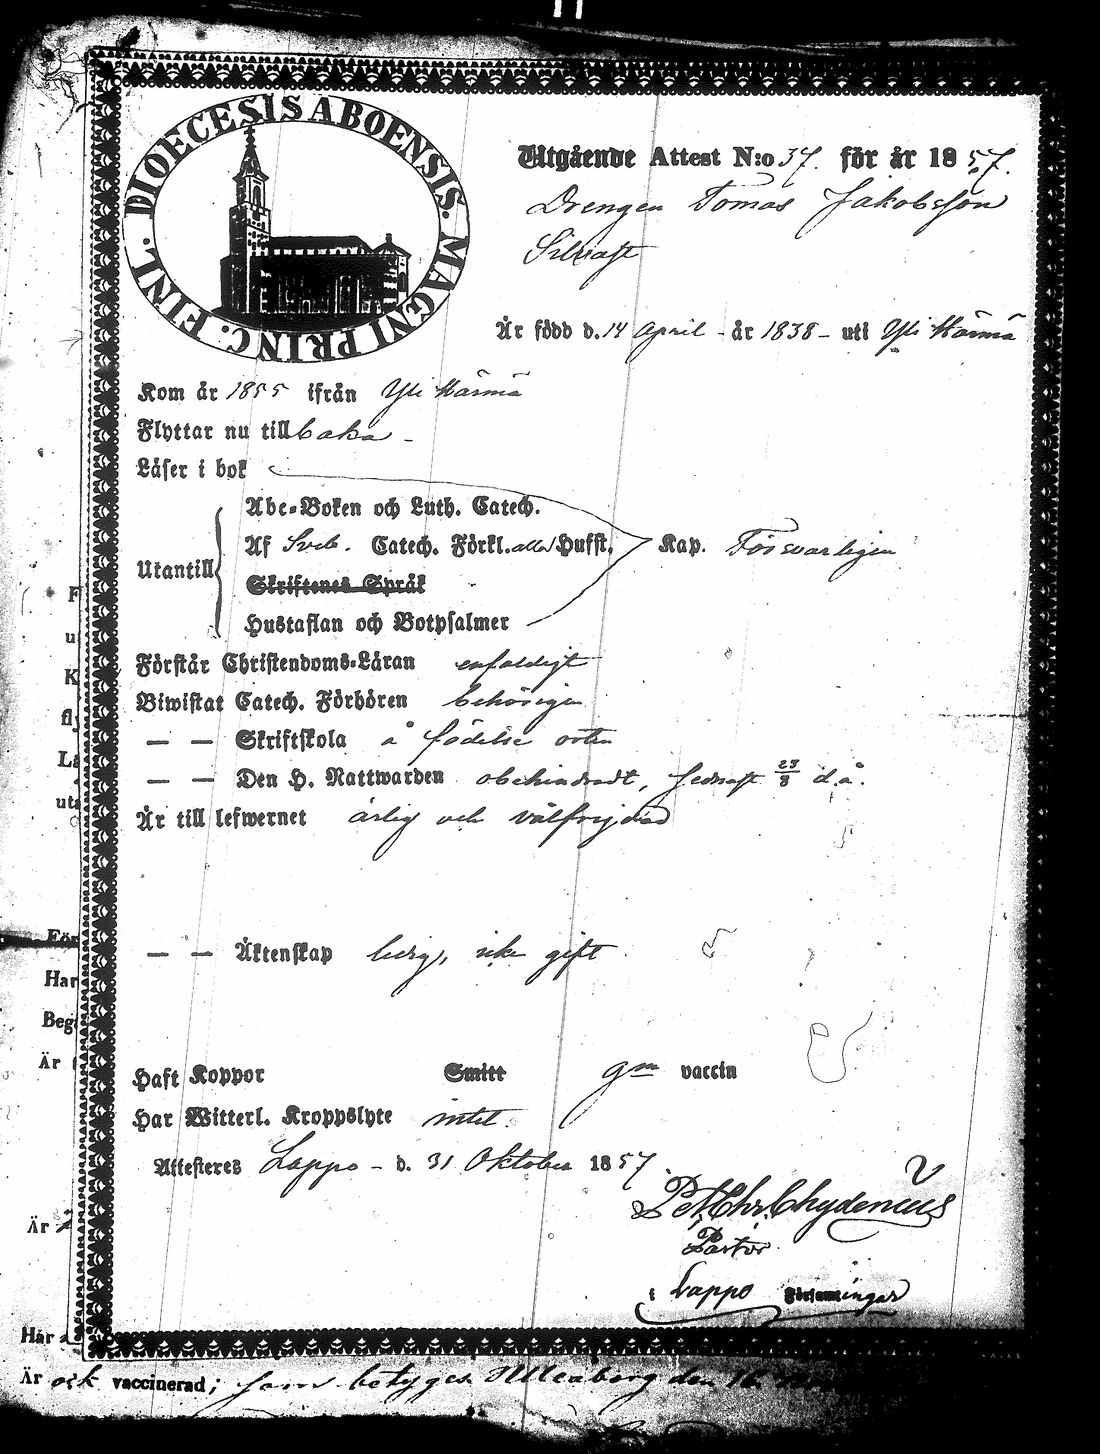 DIOECESIS ABOENSIS. MAGNI PRINC. FINL.
Utgående Attest N:o 37. för år 1857.
Drengen Tomas Jakobsson
Är född d. 14 April - år 1838 - uti Yli Härmä
Kom år 1855 ifrån Yli Härmä
Flyttar nu till baka -
Läser i bok
Abc-Boken och Luth. Catech.
Af Sveb. Catech. Förkl. alla Hufst. Kap. Försvarligen
Utantill
Skriftenes Språk
Hustaflan och Botpsalmer
Förstår Christendoms-Läran enfaldigt
Biwistat Catech. Förhören behörigen
— — Skriftskola å födelse orten
— — Den H. Nattwarden obehindradt, sednast 23/8 d.å.
Är till lefwernet ärlig och välfrejdad
— — Äktenskap ledig, icke gift
Haft Koppor Smitt gm vaccin
Har Witterl. Kroppslyte intet
Attesteres Lappo - d. 31 Oktober 1857.
Pet. Chr. Chydenius
Pastor
i Lappo Församlingar
F
u
K
fly
Lä
uta
För
Har
Beg
Är
Är
Har
Är ock vaccinerad; som betygas Uleåborg den 16